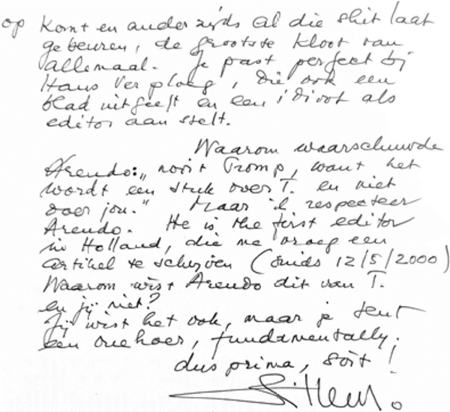 op komt en anderzijds al die shit laat
gebeuren, de grootste kloot van
allemaal. Je past perfect bij
Hans Verploeg, die ook een
blad uitgeeft en een idioot als
editor aan stelt.
Waarom waarschuwde
Arendo: "nooit Tromp, want het
wordt een stuk over T. en niet
over jou." Maar ik respecteer
Arendo. He is the first editor
in Holland, die me vroeg een
artikel te schrijven (sinds 12/5/2000)
Waarom wist Arendo dit van T.
en jij niet?
Jij wist het ook, maar je bent
een hoer, fundamentally.
dus prima, soit!
Willem.